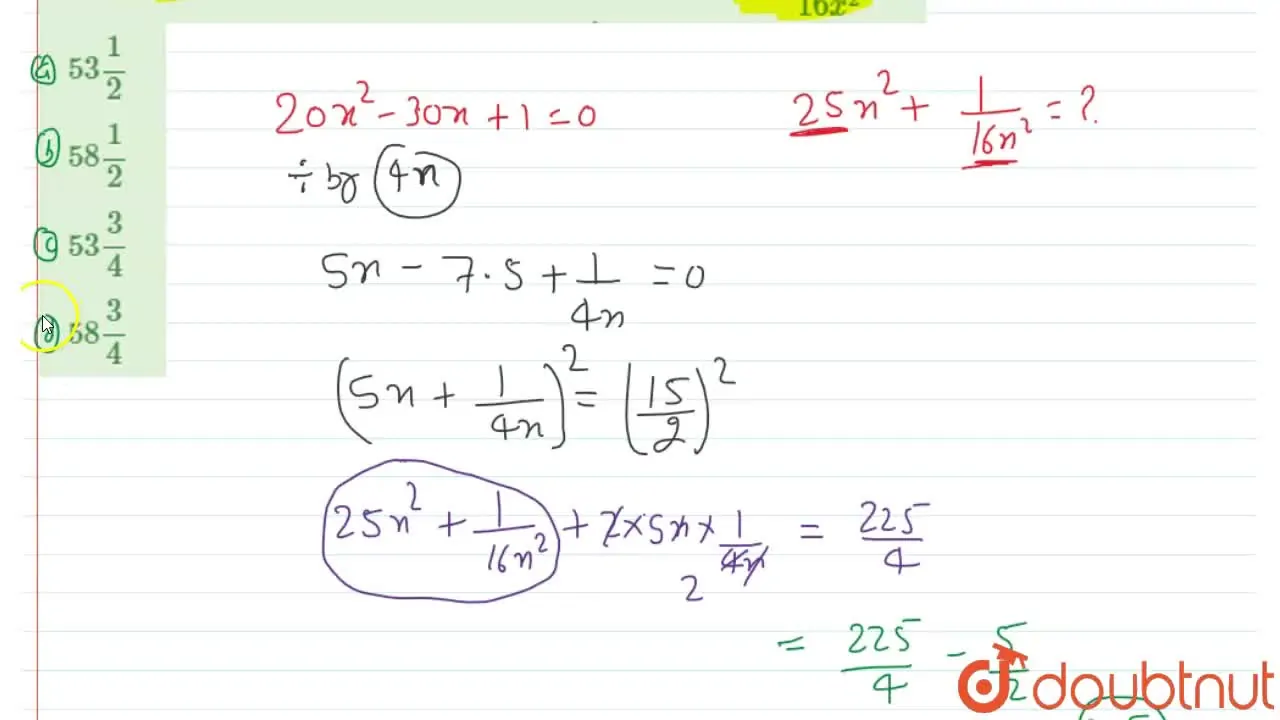 16x²
(a) 53 1/2
(b) 58 1/2
(c) 53 3/4
(d) 58 3/4
20x² - 30x + 1 = 0
25x² + 1/16x² = ?
÷ by 4x
5x - 7.5 + 1/4x = 0
(5x + 1/4x)² = (15/2)²
25x² + 1/16x² + 2 × 5x × 1/4x = 225/4
2
= 225/4 - 5/2
doubtnut